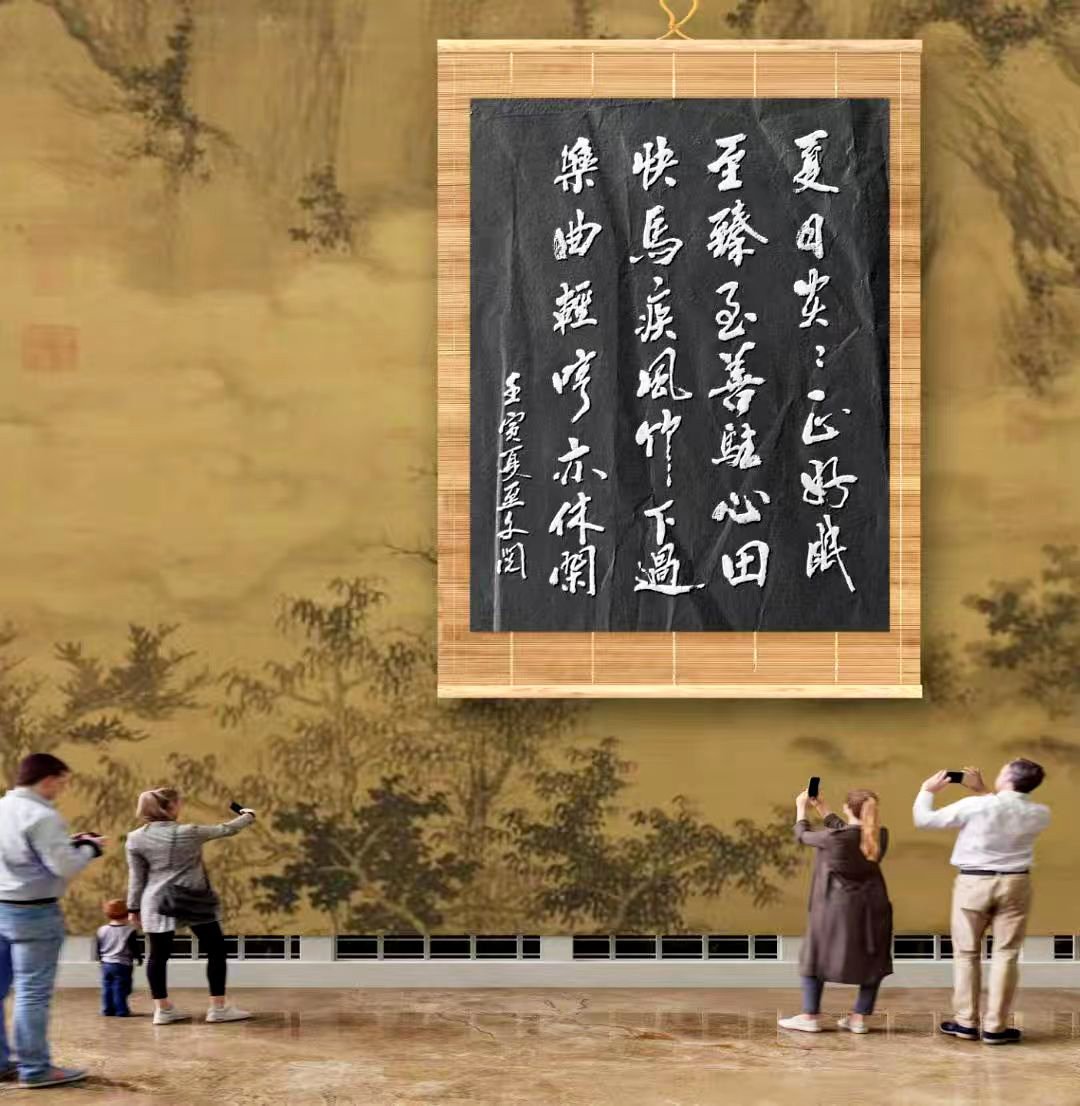 夏日炎〻正好眠
至臻至善駐心田
快馬疾風竹下過
樂曲輕哼亦休閑
壬寅夏亚文